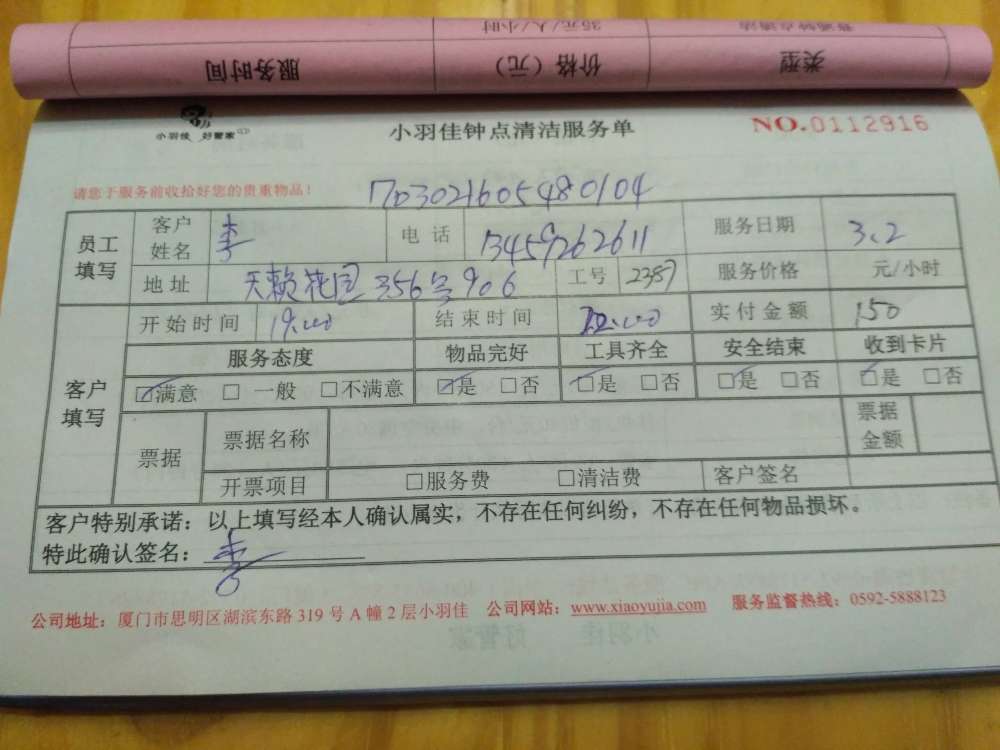 普通钟点清洁 35元/人/小时
类型 价格（元） 服务时间
小羽佳 好管家
小羽佳钟点清洁服务单
NO.0112916
请您于服务前收拾好您的贵重物品！
170302160548 0104
员工填写 客户姓名 李 电话 13459262611 服务日期 3.2
地址 天赖花园356号906 工号 2387 服务价格 元/小时
客户填写 开始时间 19:00 结束时间 22:00 实付金额 150
服务态度 物品完好 工具齐全 安全结束 收到卡片
☑满意 □一般 □不满意 ☑是 □否 ☑是 □否 ☑是 □否 ☑是 □否
票据 票据名称 票据金额
开票项目 □服务费 □清洁费 客户签名
客户特别承诺：以上填写经本人确认属实，不存在任何纠纷，不存在任何物品损坏。
特此确认签名：李
公司地址：厦门市思明区湖滨东路319号A幢2层小羽佳 公司网站：www.xiaoyujia.com 服务监督热线：0592-5888123